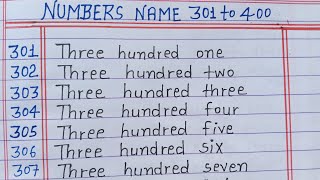 NUMBERS NAME 301 to 400
301 Three hundred one
302 Three hundred two
303 Three hundred three
304 Three hundred four
305 Three hundred five
306 Three hundred six
307 Three hundred seven